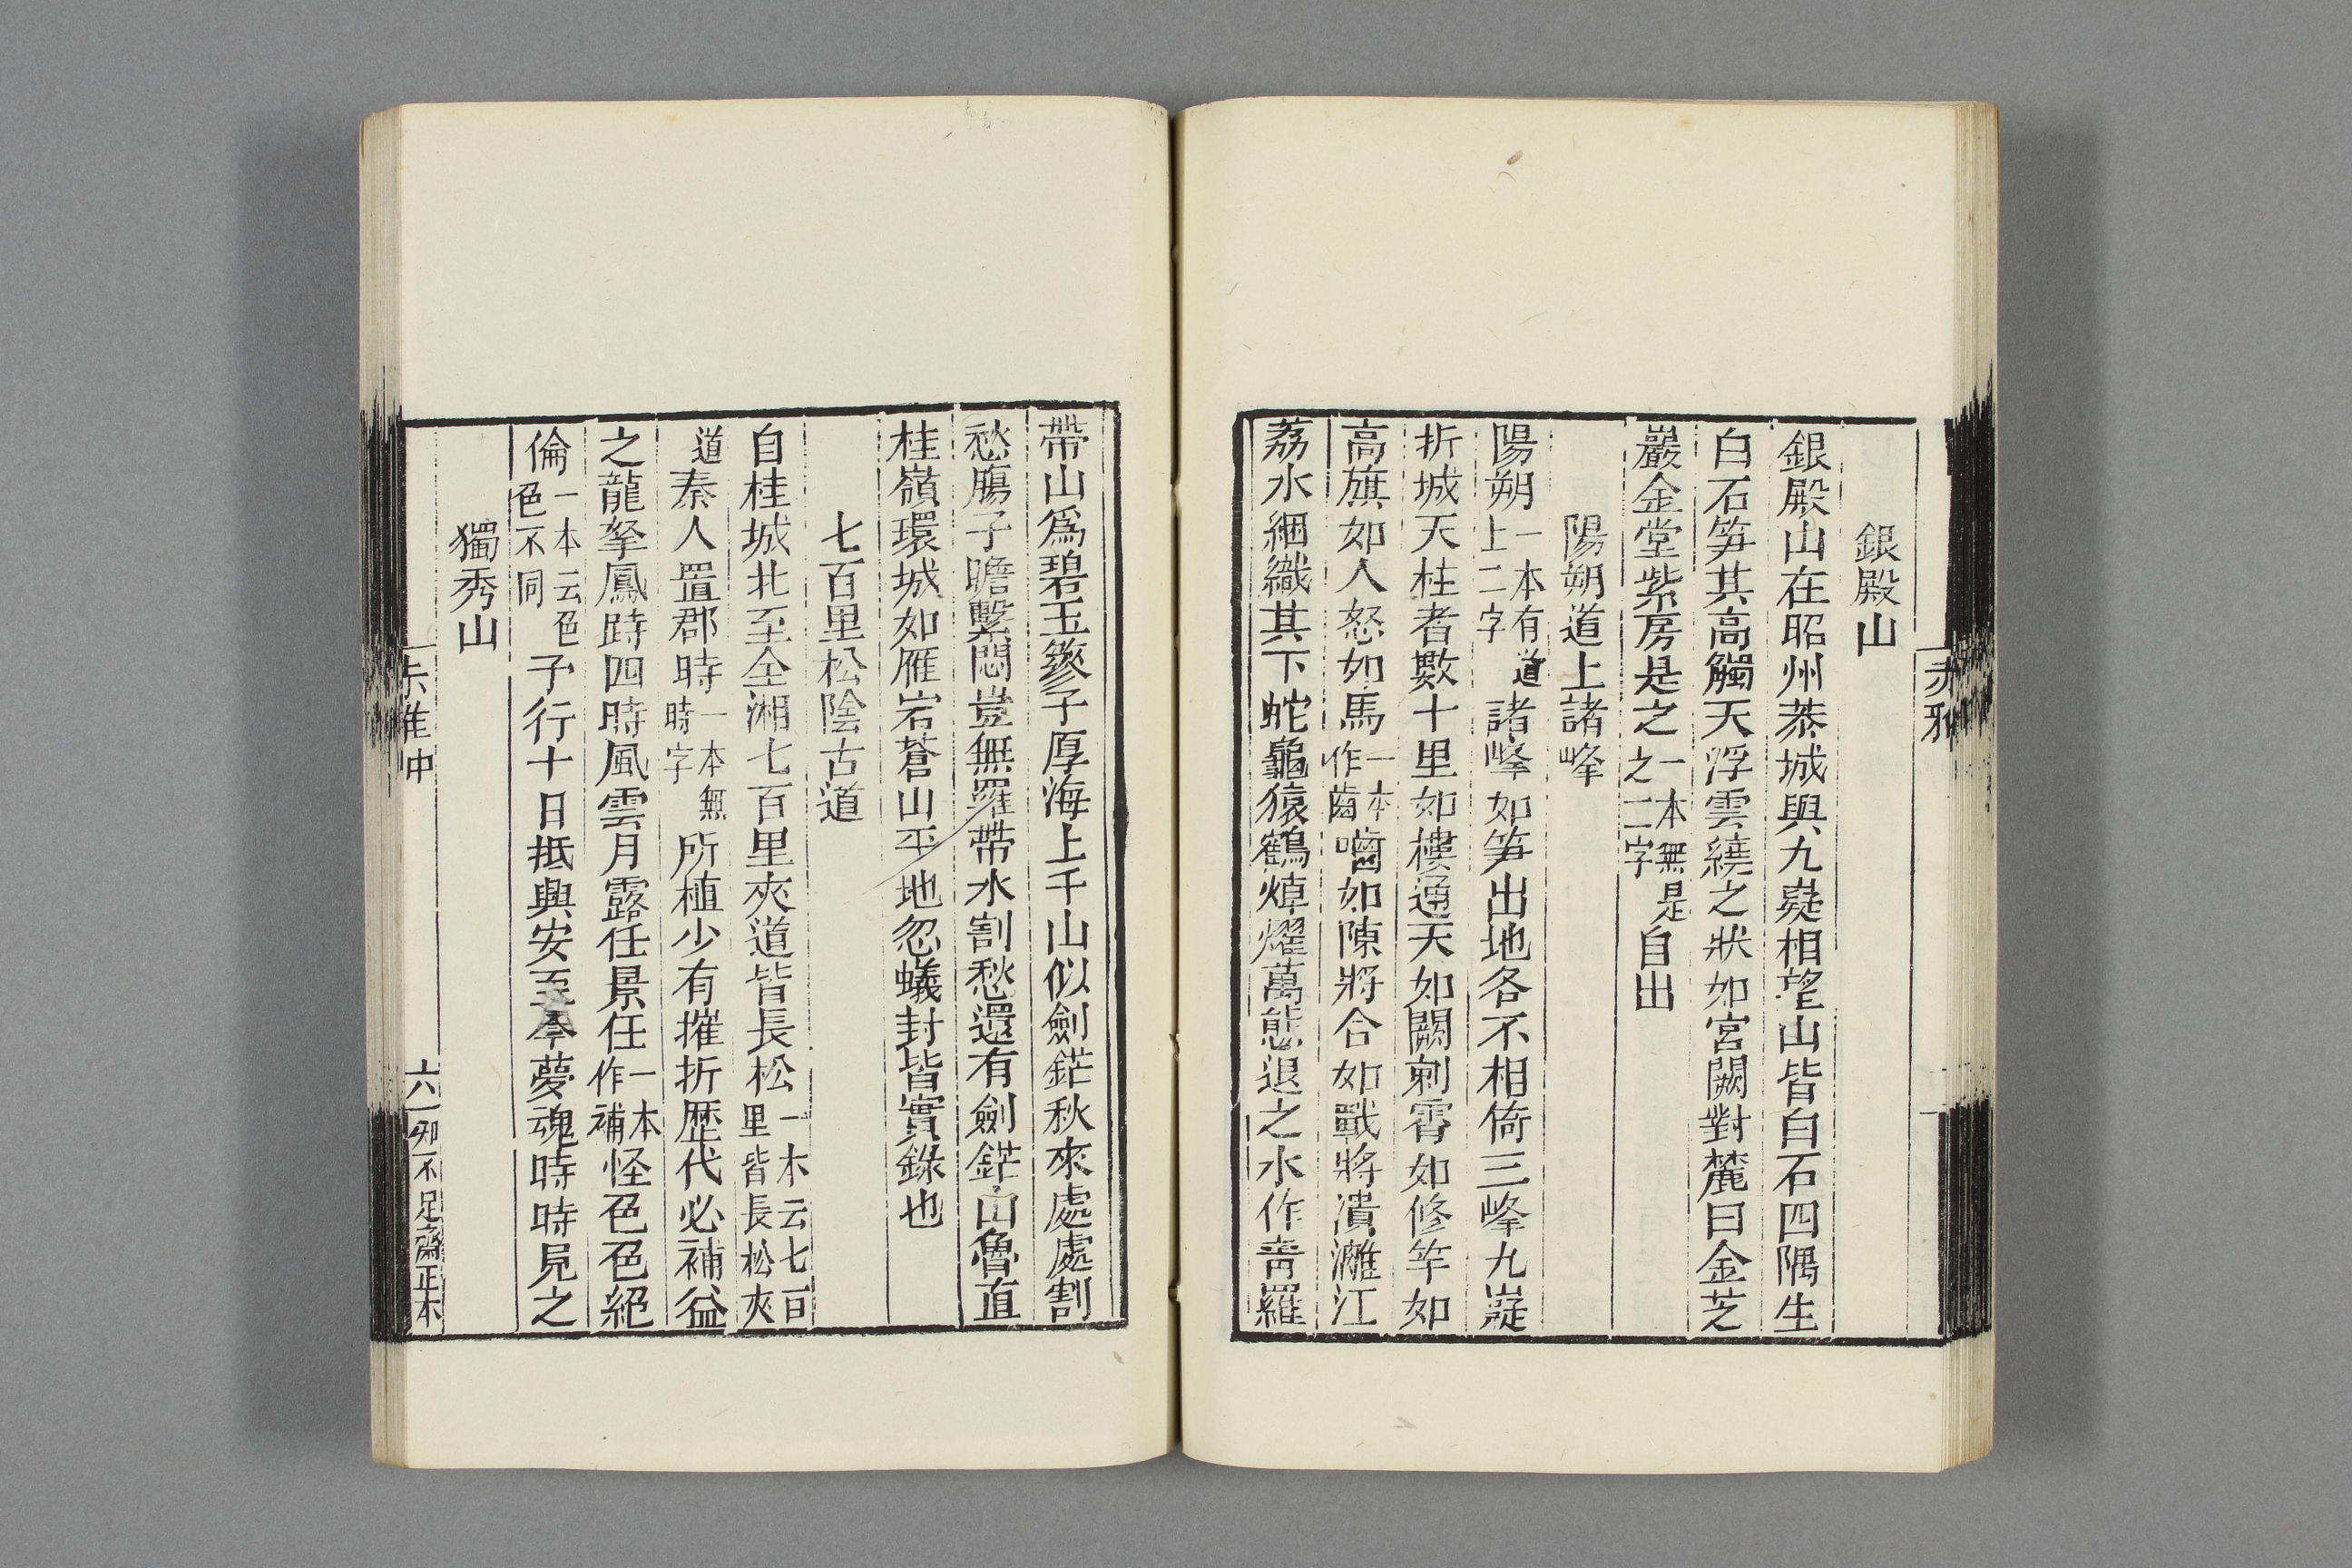 赤雅
銀殿山
銀殿山在昭州恭城與九嶷相望山皆白石四隅生
白石笋其高觸天浮雲繞之狀如宮闕對麓曰金芝
巖金堂紫房是之一本無是之二字自出
陽朔道上諸峰
陽朔一本有道上二字諸峰如笋出地各不相倚三峰九嶷
折城天柱者數十里如樓通天如闕剌霄如修竿如
高旗如人怒如馬一本作齒嚙如陳將合如戰將潰灕江
荔水綑織其下蛇龜猿鶴焯燿萬態退之水作靑羅
帶山爲碧玉篸子厚海上千山似劍鋩秋來處處割
愁腸子瞻繫悶豈無羅帶水割愁還有劍鋩山魯直
桂嶺環城如雁宕蒼山平地忽蟻封皆實錄也
七百里松陰古道
自桂城北至全湘七百里夾道皆長松一本云七百里皆長松夾
道秦人置郡時一本無時字所植少有摧折歷代必補益
之龍拏鳳跱四時風雲月露任景任一本作補怪色色絕
倫一本云色色不同予行十日抵興安至今夢魂時時見之
獨秀山
赤雅中
六
知不足齋正本